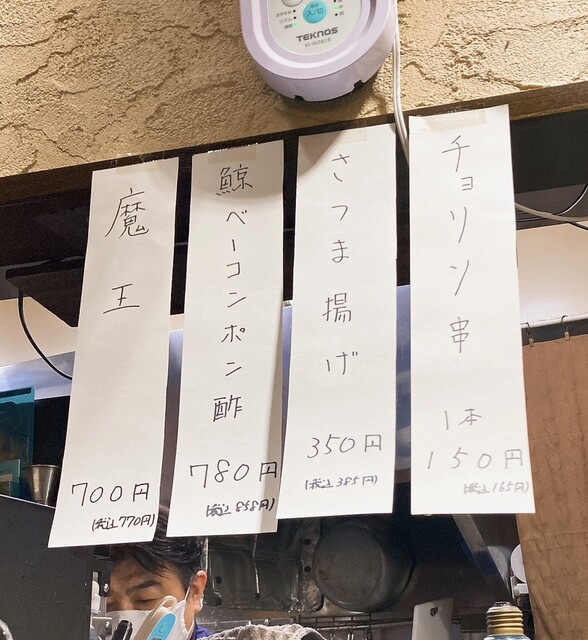 TEKNOS
チョリソ串
1本
150円
(税込165円)
さつま揚げ
350円
(税込385円)
鯨ベーコンポン酢
780円
(税込858円)
魔王
700円
(税込770円)